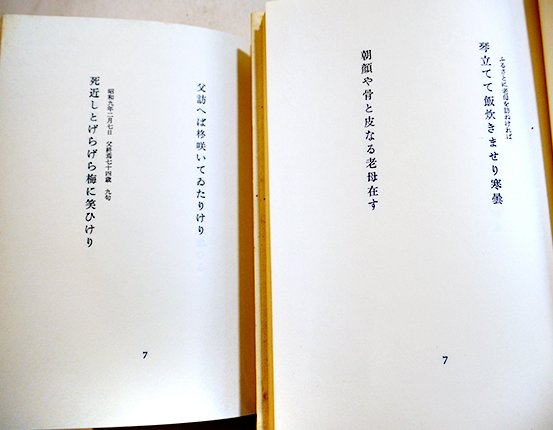 ふるさとに老母を訪ねければ
琴立てて飯炊きませり寒曇
朝顔や骨と皮なる老母在す
7
父訪へば柊咲いてゐたりけり
昭和九年二月七日 父終焉七十四歳 九句
死近しとげらげら梅に笑ひけり
7